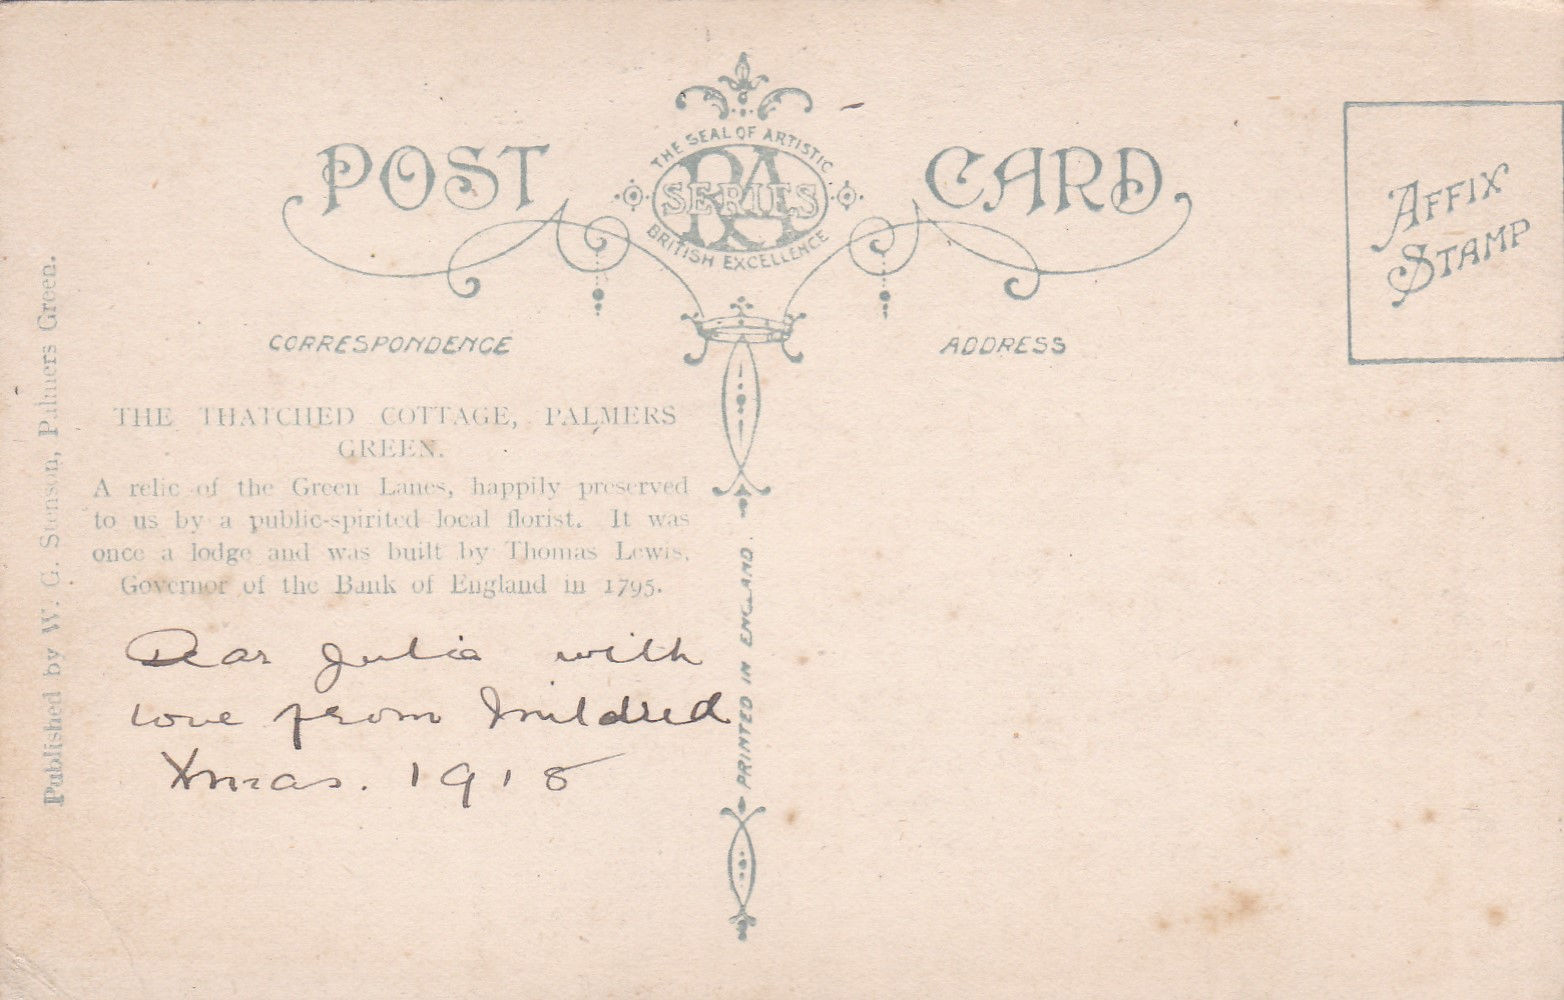 POST CARD
THE SEAL OF ARTISTIC
RA
SERIES
BRITISH EXCELLENCE
AFFIX
STAMP
CORRESPONDENCE
ADDRESS
THE THATCHED COTTAGE, PALMERS
GREEN.
A relic of the Green Lanes, happily preserved
to us by a public-spirited local florist. It was
once a lodge and was built by Thomas Lewis,
Governor of the Bank of England in 1795.
Dear Julia with
love from Mildred
Xmas. 1918
Published by W. G. Stenson, Palmers Green.
PRINTED IN ENGLAND.